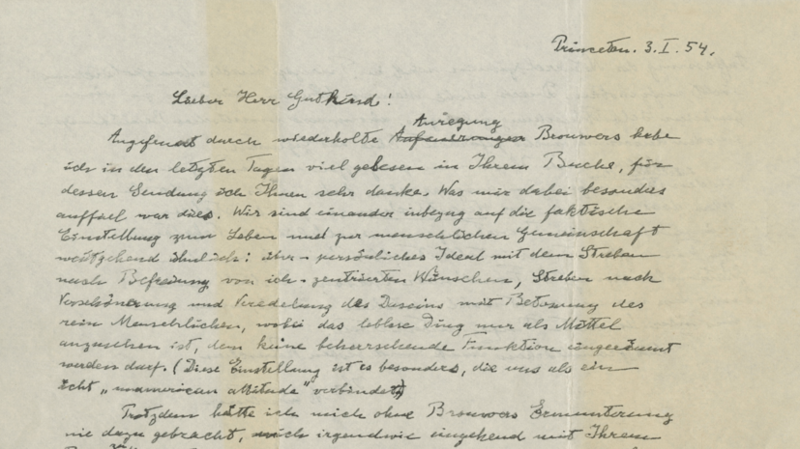 Princeton. 3. I. 54.
Lieber Herr Gutkind!
Anregung
Angefeuert durch wiederholte Brouwers habe
ich in den letzten Tagen viel gelesen in Ihrem Buche, für
dessen Sendung ich Ihnen sehr danke. Was mir dabei besonders
auffiel war dies. Wir sind einander inbezug auf die faktische
Einstellung zum Leben und zur menschlichen Gemeinschaft
weitgehend ähnlich: über-persönliches Ideal mit dem Streben
nach Befreiung von ich-zentrierten Wünschen, Streben nach
Verschönerung und Veredelung des Daseins mit Betonung des
rein Menschlichen, wobei das leblose Ding nur als Mittel
anzusehen ist, dem keine beherrschende Funktion eingeräumt
werden darf. (Diese Einstellung ist es besonders, die uns als ein
echt „unamerican attitude" verbindet)
Trotzdem hätte ich mich ohne Brouwers Ermunterung
nie dazu gebracht, mich irgendwie eingehend mit Ihrem